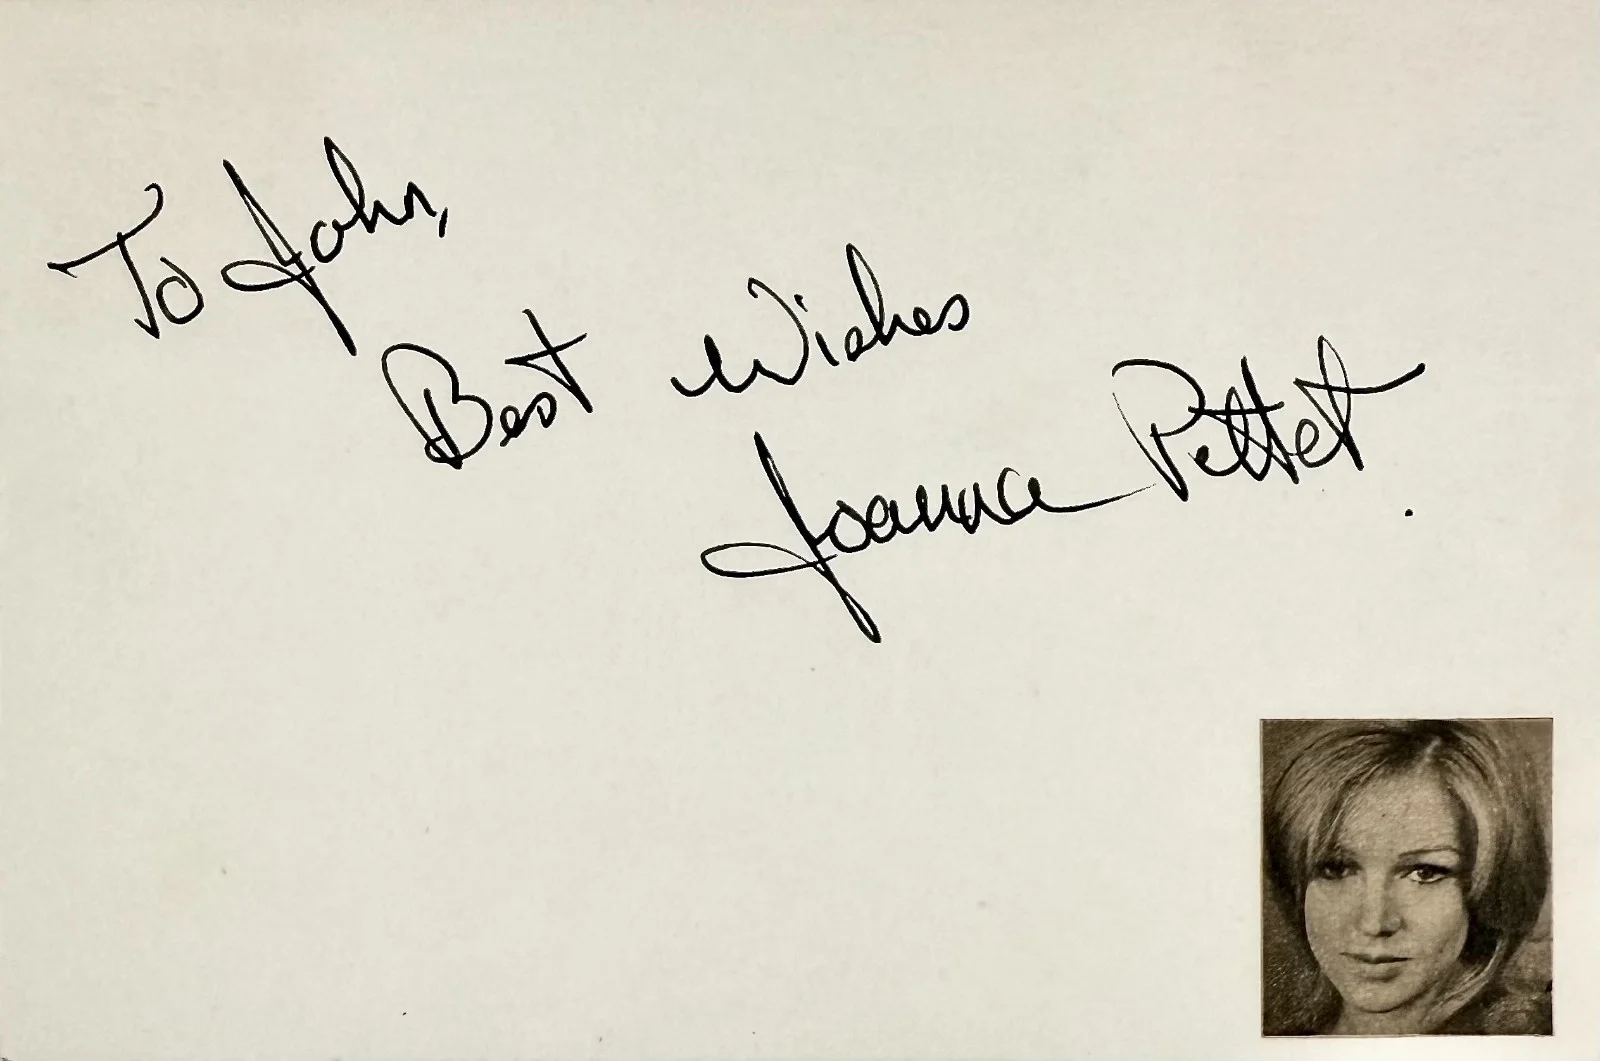 To John,
Best Wishes
Joanna Pettet.